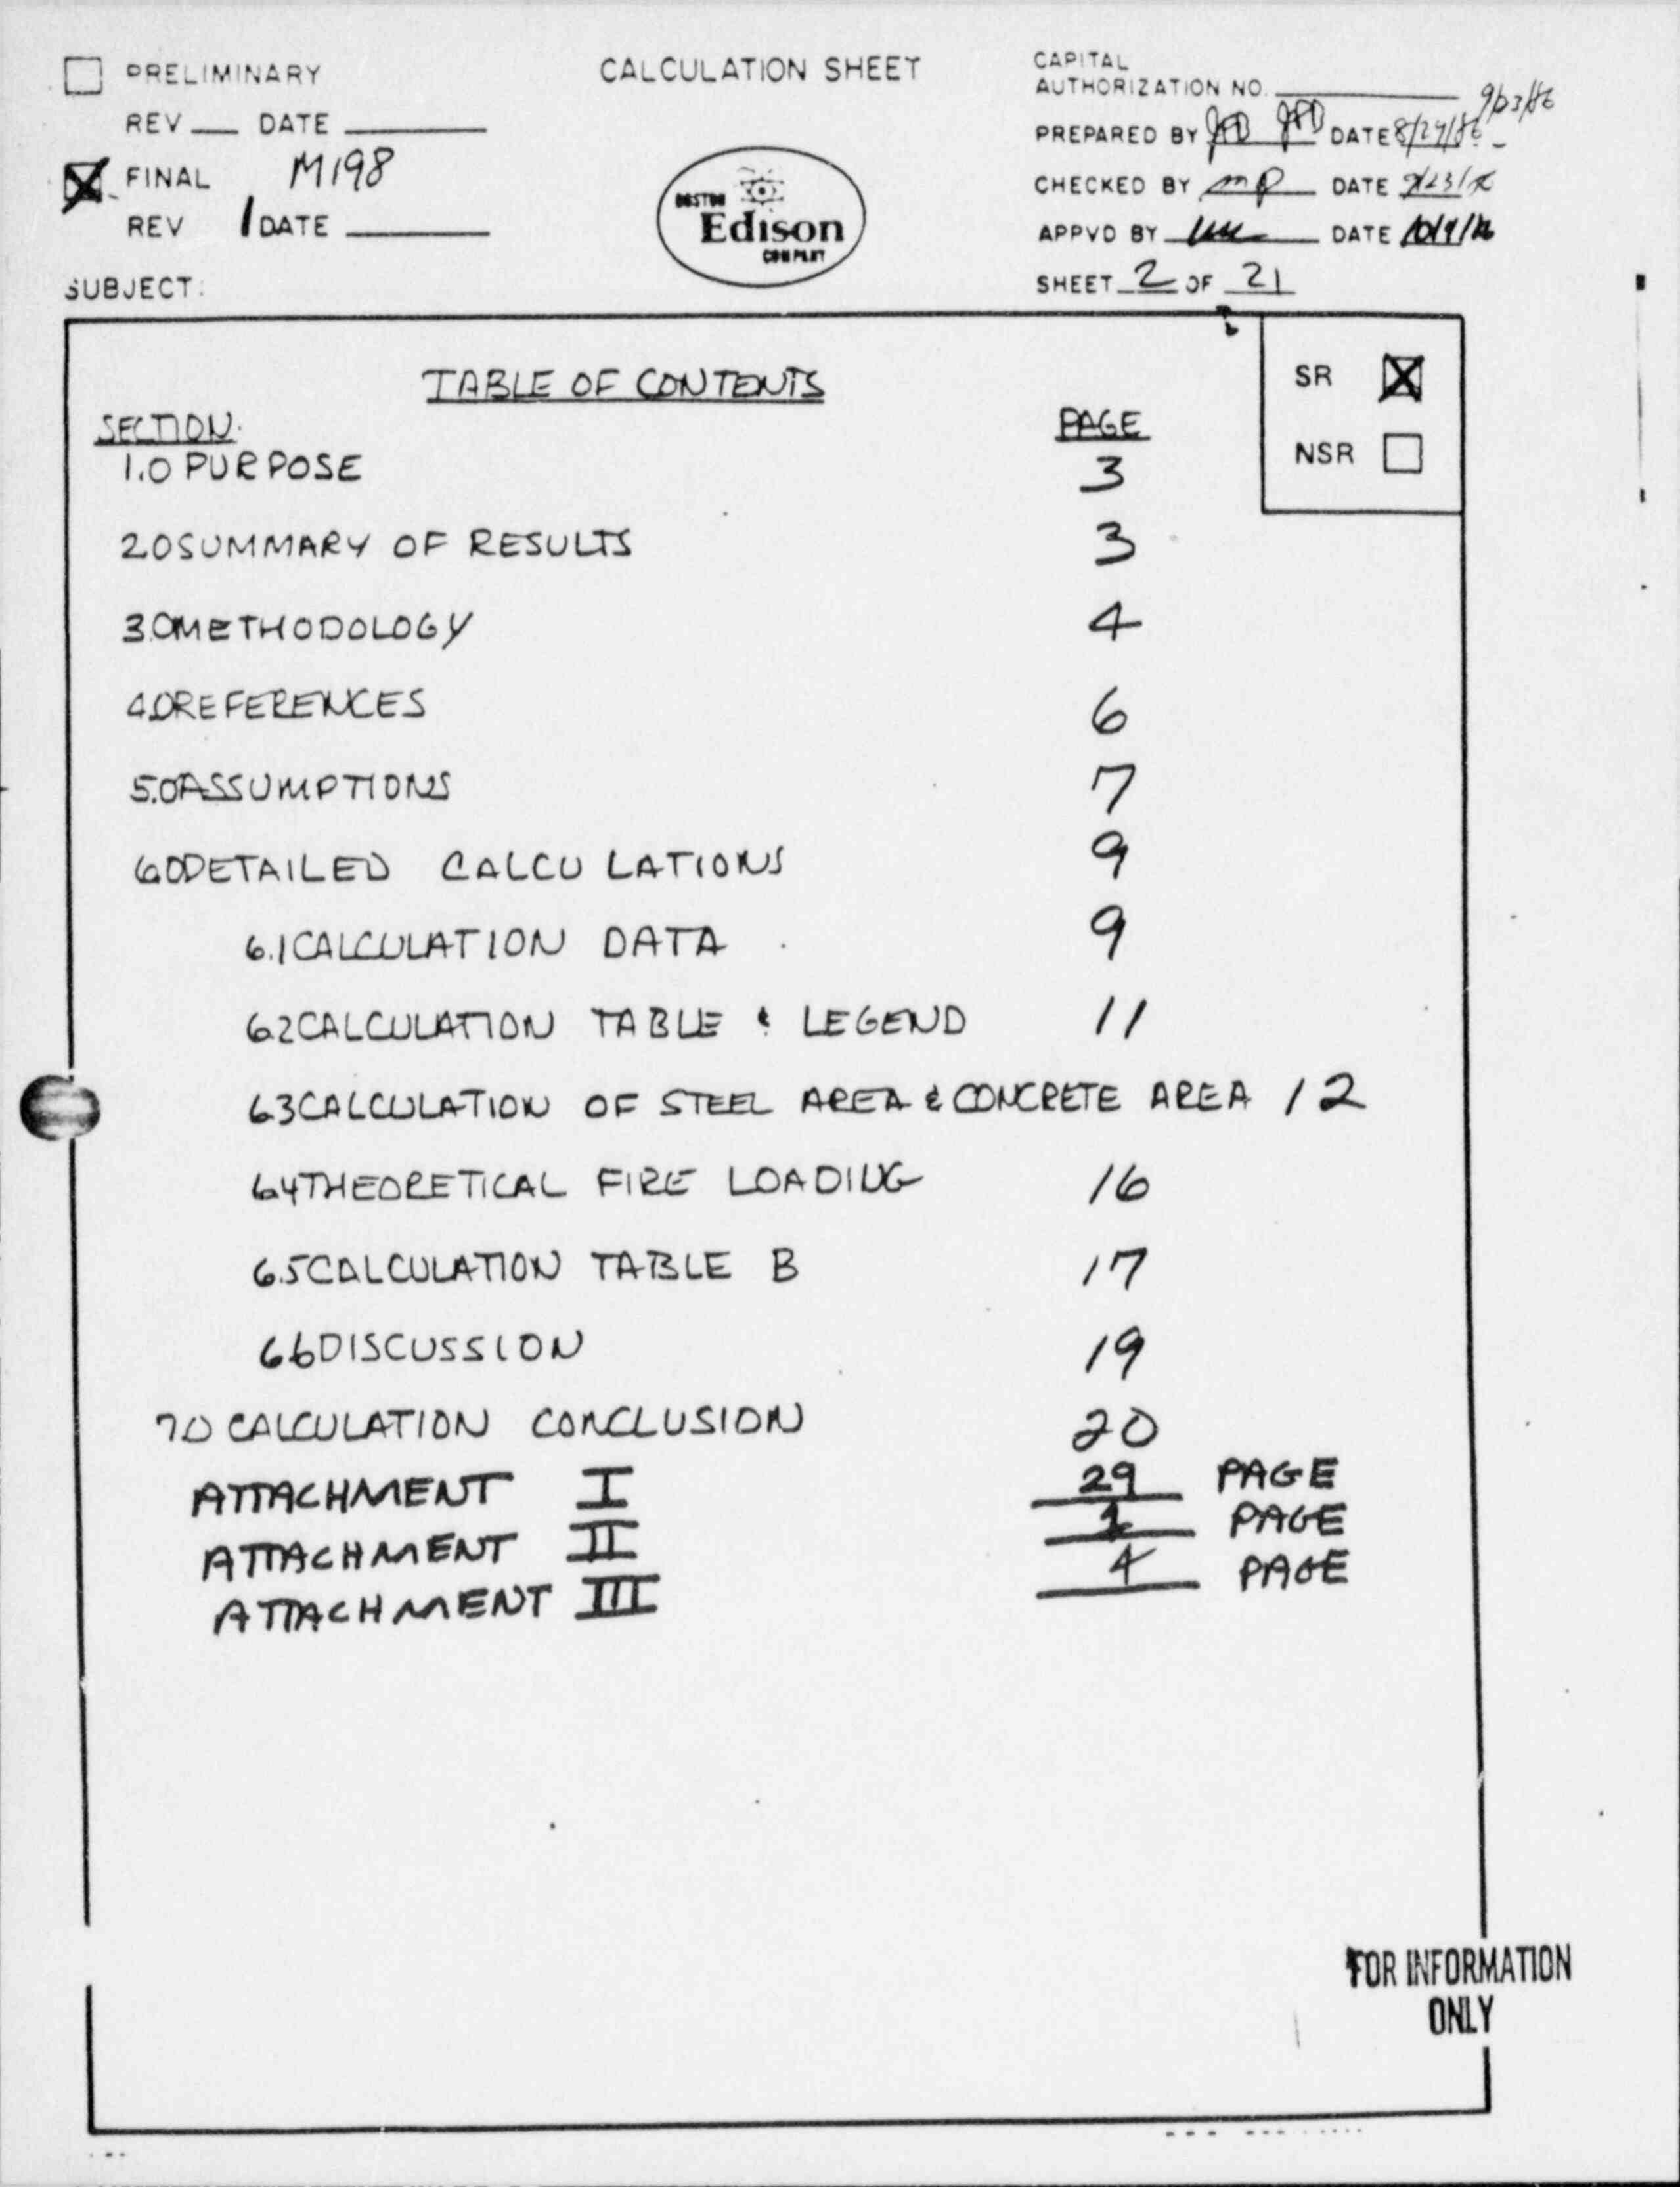 PRELIMINARY
REV DATE
FINAL M198
REV 1 DATE
SUBJECT:
CALCULATION SHEET
BOSTON
Edison
COMPANY
CAPITAL
AUTHORIZATION NO.
9/23/86
PREPARED BY DATE 8/27/86
CHECKED BY MP DATE 9/23/86
APPVD BY DATE 10/9/86
SHEET 2 OF 21
SR
NSR
TABLE OF CONTENTS
SECTION. PAGE
1.0 PURPOSE 3
2.0 SUMMARY OF RESULTS 3
3.0 METHODOLOGY 4
4.0 REFERENCES 6
5.0 ASSUMPTIONS 7
6.0 DETAILED CALCULATIONS 9
6.1 CALCULATION DATA 9
6.2 CALCULATION TABLE & LEGEND 11
6.3 CALCULATION OF STEEL AREA & CONCRETE AREA 12
6.4 THEORETICAL FIRE LOADING 16
6.5 CALCULATION TABLE B 17
6.6 DISCUSSION 19
7.0 CALCULATION CONCLUSION 20
ATTACHMENT I 29 PAGE
ATTACHMENT II 1 PAGE
ATTACHMENT III 4 PAGE
FOR INFORMATION
ONLY